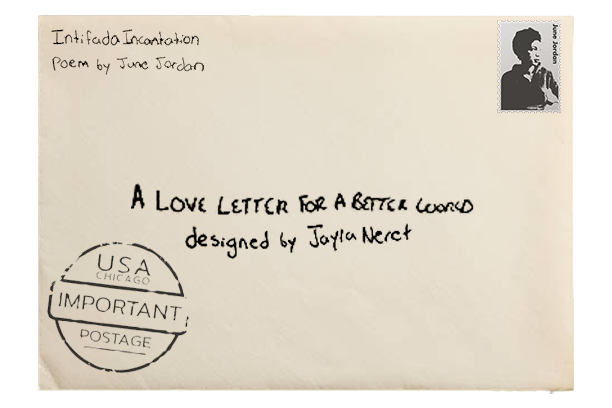 Intifada Incantation
Poem by June Jordan
June Jordan
A LOVE LETTER FOR A BETTER WORLD
designed by Jayla Neret
USA
CHICAGO
IMPORTANT
POSTAGE